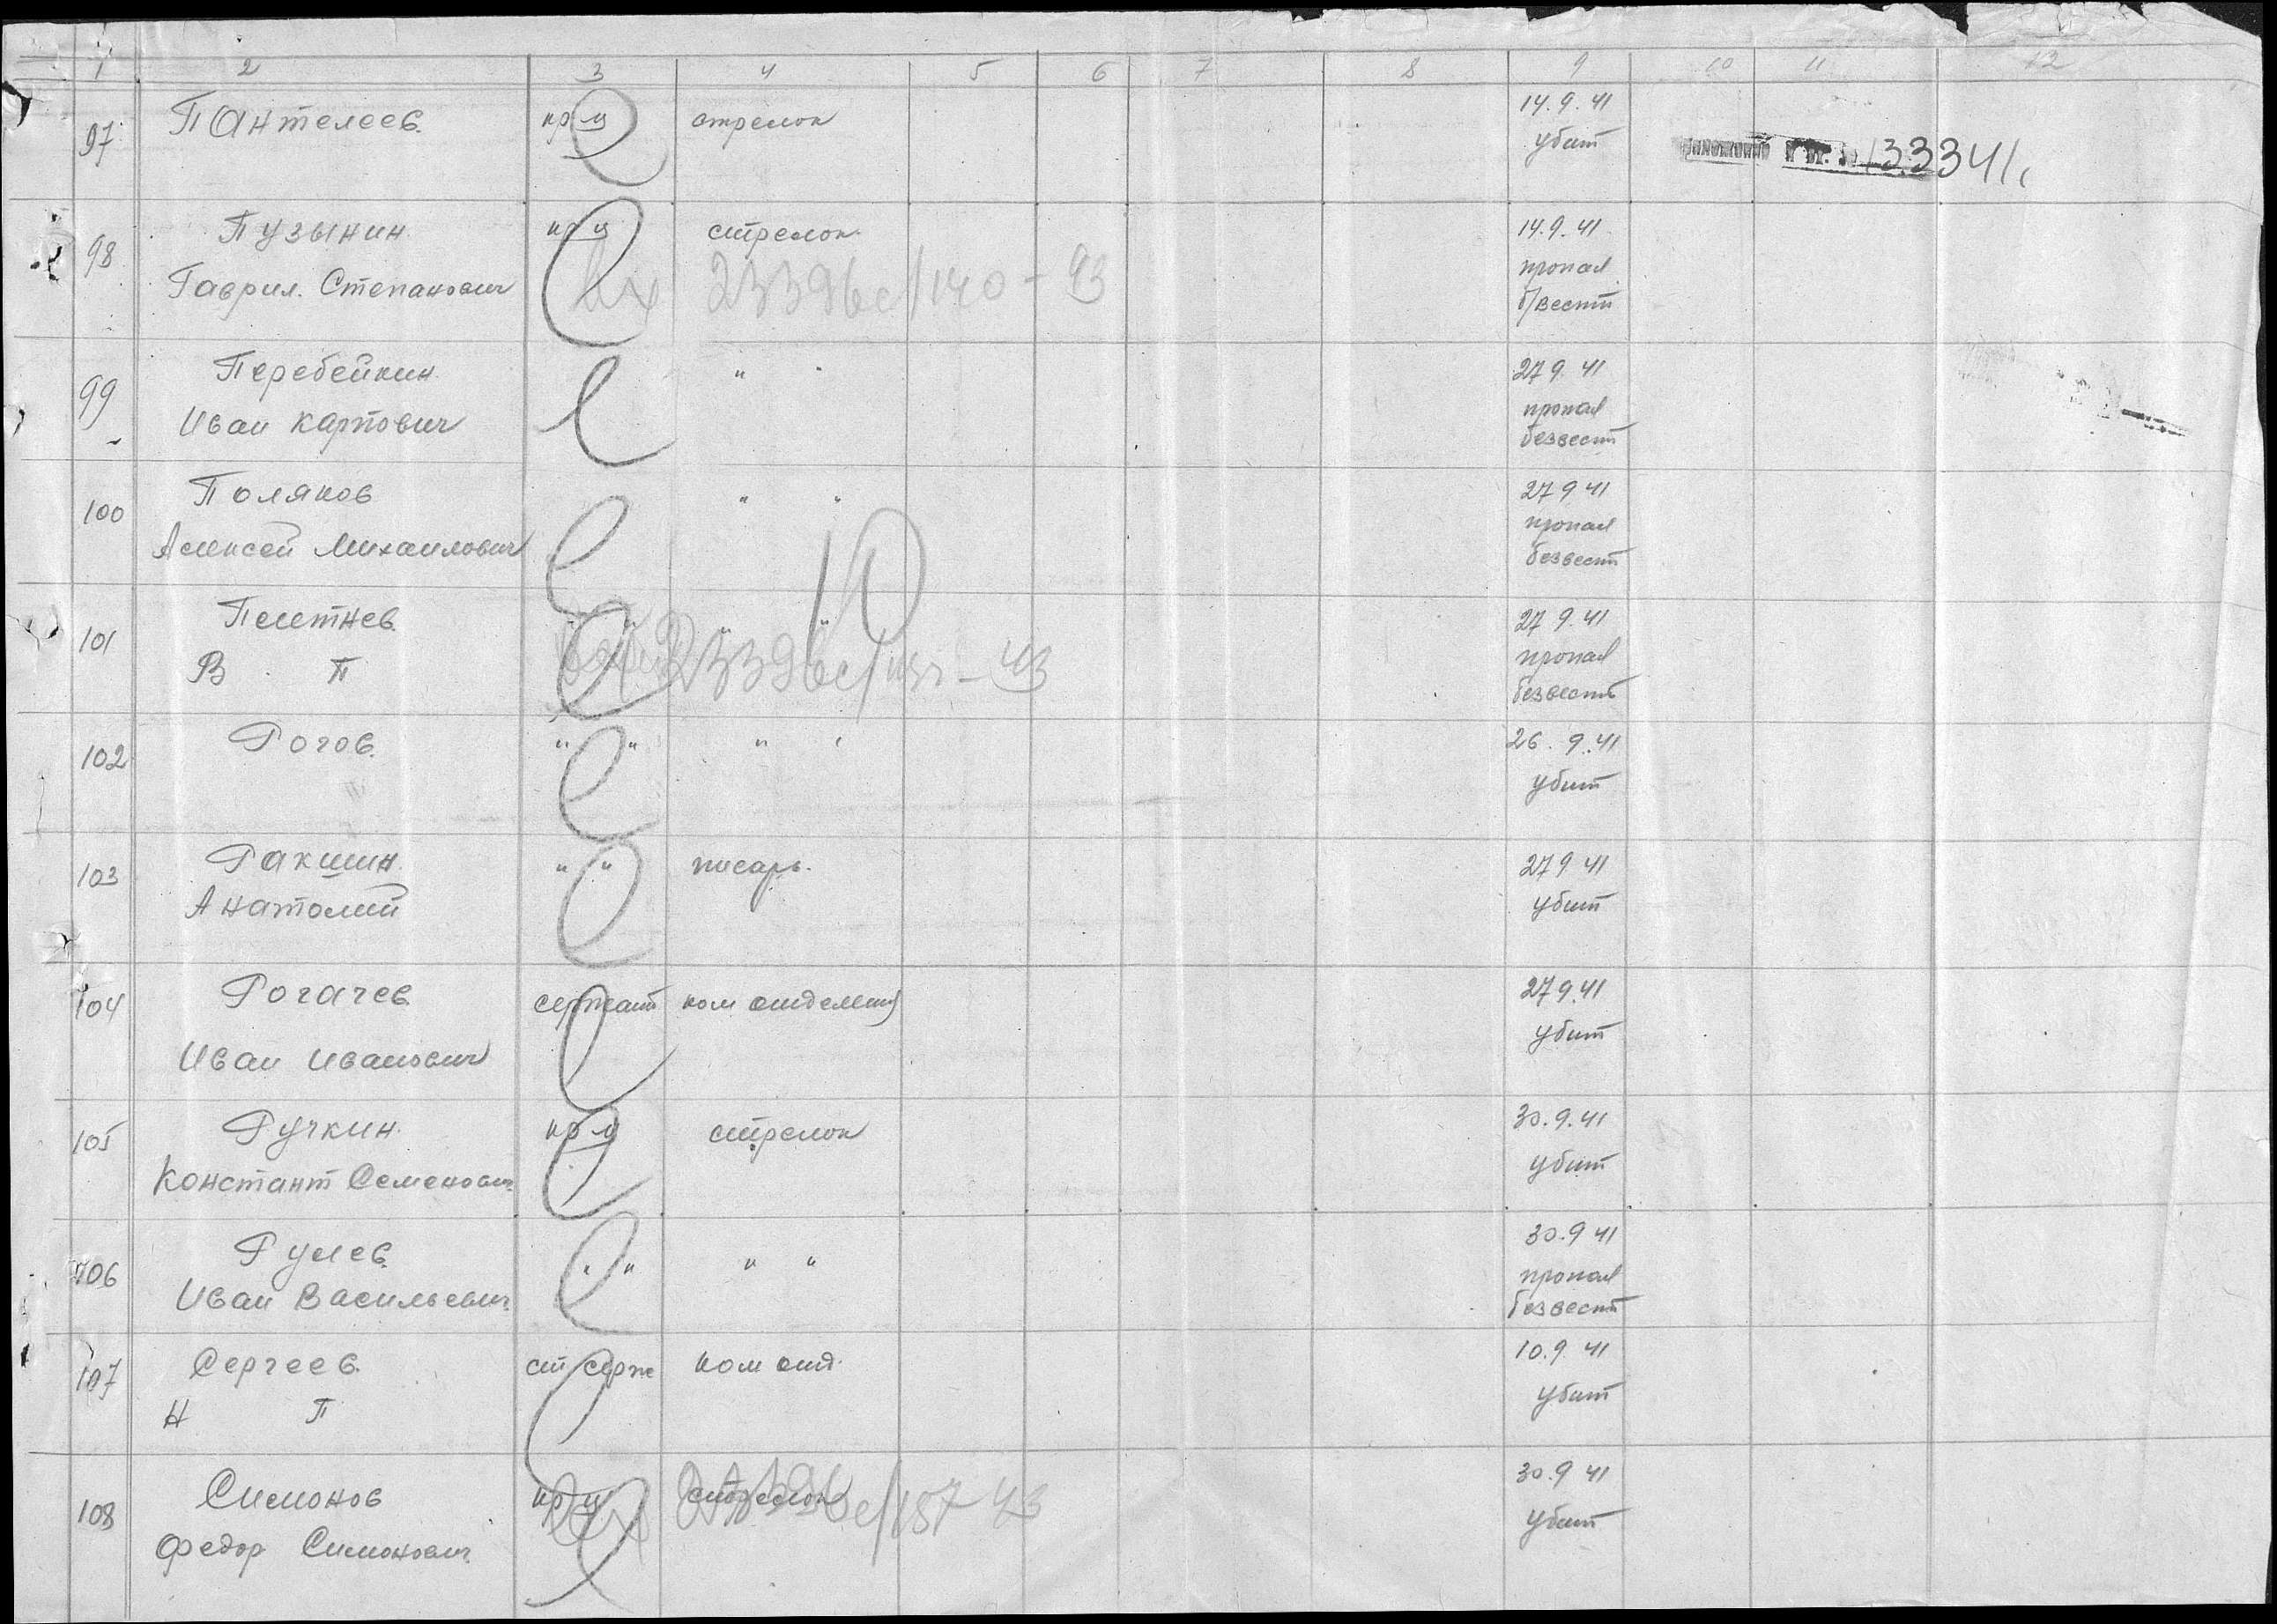 1 2 3 4 5 6 7 8 9 10 11 12
97 Пантелеев кр-ц стрелок 14.9.41
убит
13334/с
98 Пузынин кр-ц стрелок 14.9.41
Гаврил. Степанович пропал
б/вести
вх 23396с/140-43
99 Перебейкин " " 27 9 41
Иван Карпович пропал
безвест
100 Поляков " " 27 9 41
Алексей Михаилович пропал
безвест
101 " " " " 27 9.41
В П пропал
безвест
23396с/ - 43
102 Рогов " " " " 26.9.41
убит
103 Ракшин " " писарь 27 9 41
Анатолий убит
104 Рогачев сержант ком отделен 27 9.41
Иван Иванович убит
105 Ручкин кр-ц стрелок 30.9.41
Константи Семенович убит
106 " " " " 30.9 41
Иван Васильевич пропал
безвест
107 Сергеев ст серж ком отд. 10.9 41
Н П убит
108 Симонов кр-ц стрелок 30.9 41
Федор Симонович убит
вх 23396с/157-43